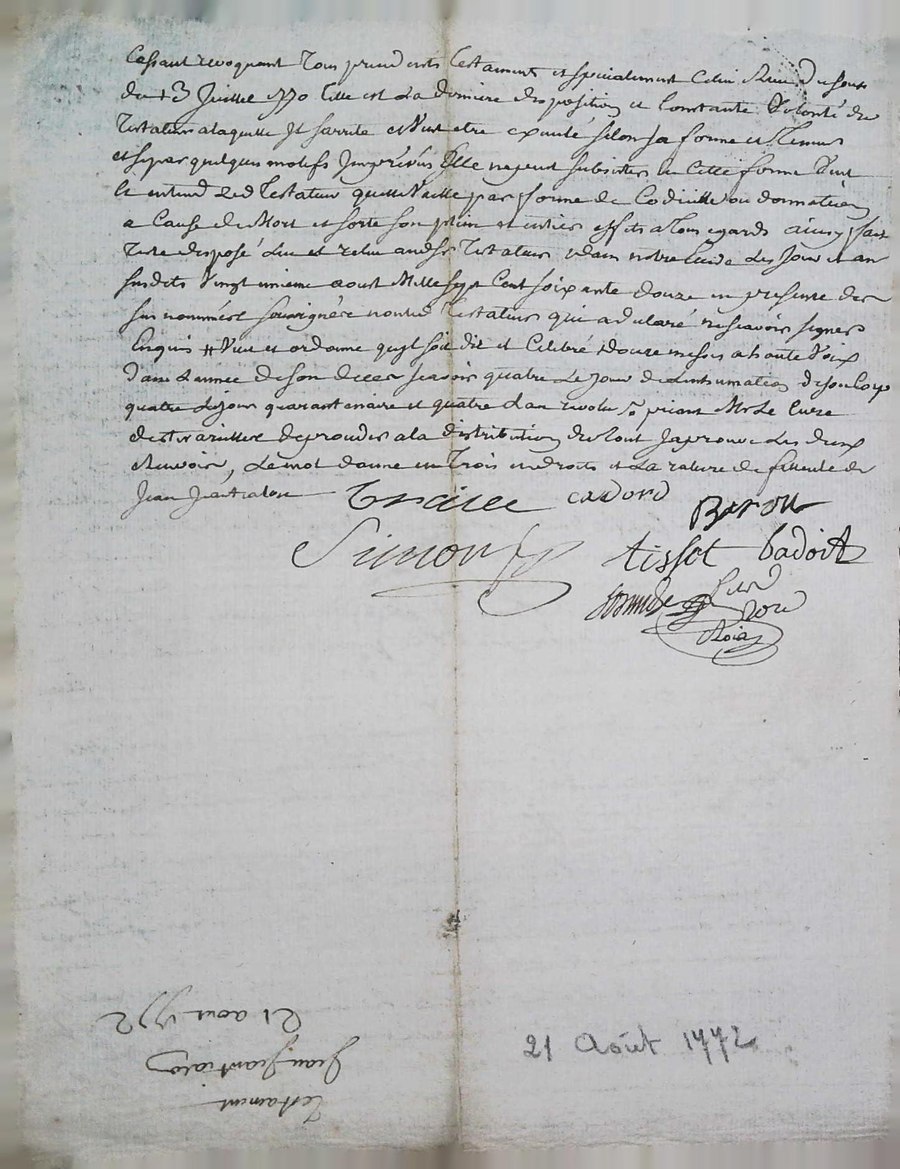 Cassant revoquant Tous precedents testament et specialement Celui Receu de nous
du 13 Juillet 1770 telle est La derniere disposition et Constante Volonté du
Testateur a laquelle Il sarrete et Veut etre executé selon sa forme et teneur
et sy par quelques motifs Imprevus Elle ne peut subsister en Cette forme Veut
et entend Led Testateur quelle Vaille par forme de Codicille ou donnation
a Cause de Mort et sorte son plein et entier effet a tous egards ainsy fait
Testé disposé Lu et relu aud Sr Testateur dans notre Etude Les Jour et an
susdits Vingt unieme aout Mille sept Cent soixante douze en presence des
sus nommés soussignés non led Testateur qui a declaré ne scavoir signer
Enquis # Veut et ordonne quyl soit dit et Celebré douze messes a haute Voix
dans Lannée de son deces scavoir quatre Le Jour de Linhumation de son Corps
quatre Le Jour quarantenaire et quatre Lan revolu priant Mr Le Curé
de proceder a la distribution du tout Japrouve Les deux
Renvois, Le mot danne en Trois endroits et La rature de
Jean
cadord
Berou
Simon
tissot badoit
21 aout 1772
Jean
Testament
21 Août 1772